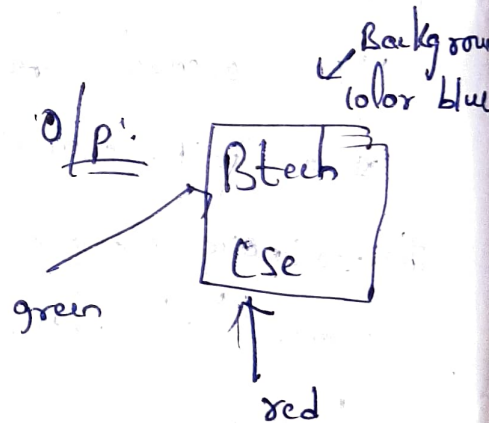 Backgrou
color blue
O/p:
Btech
Cse
green
red